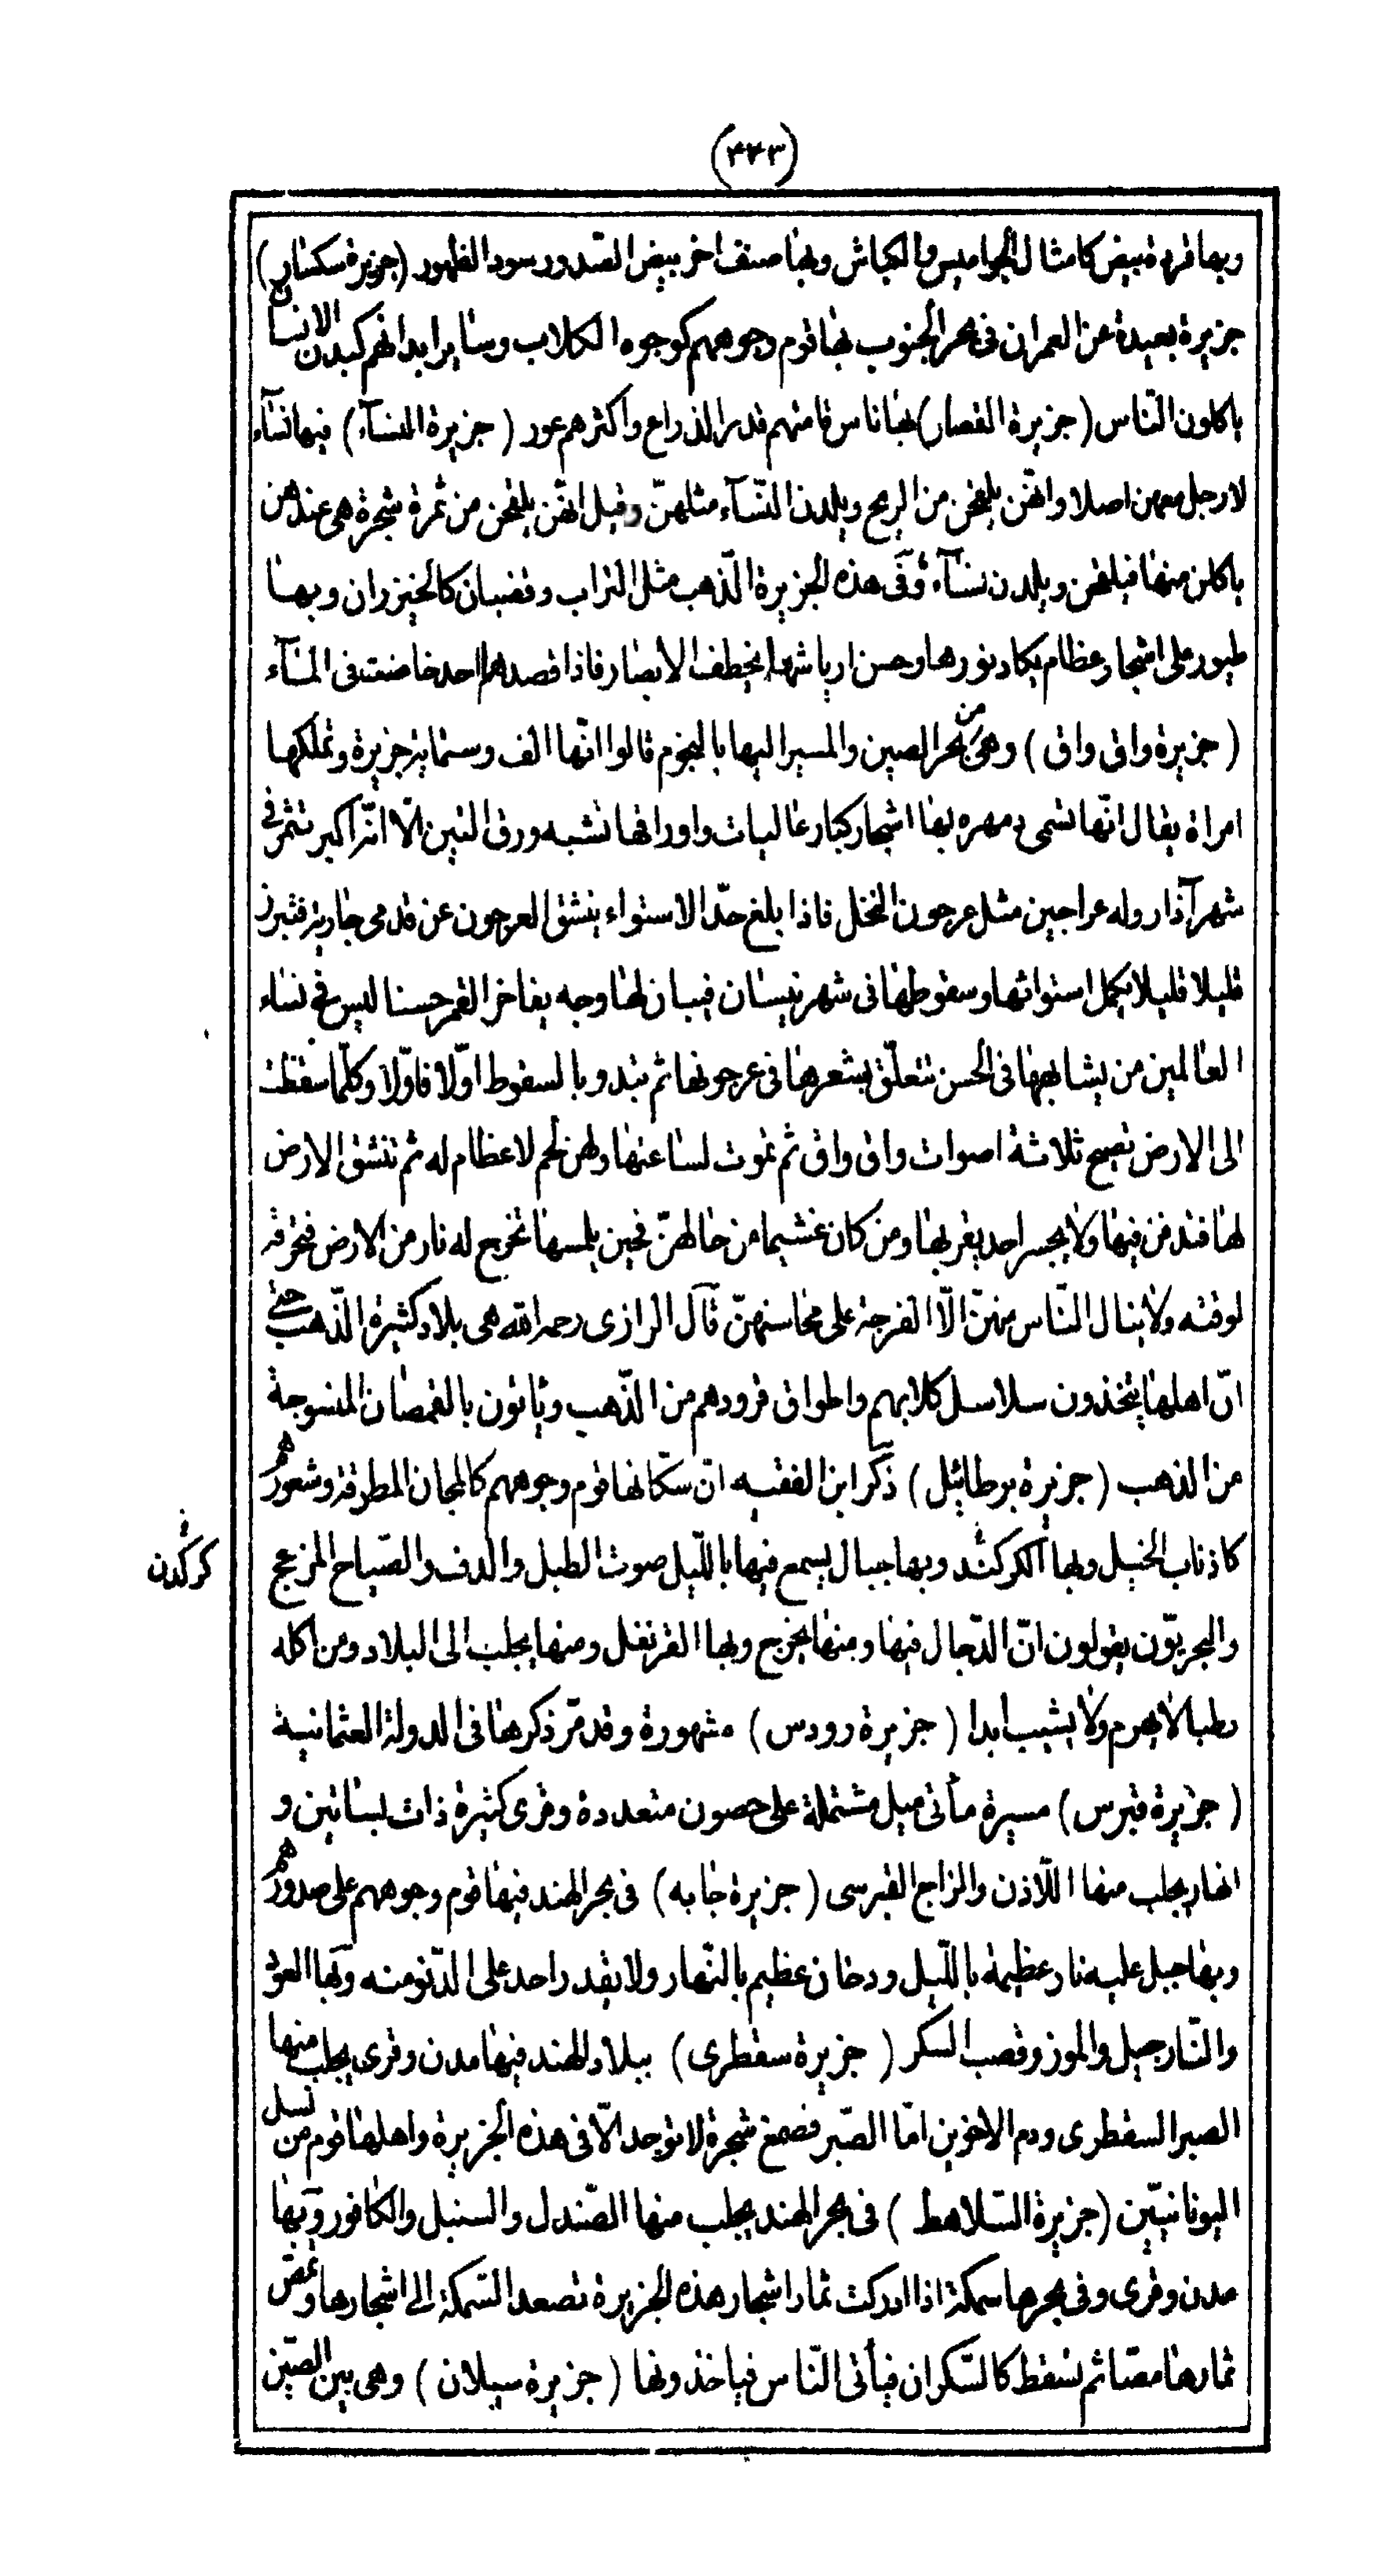 (٤٤٣)
وبها قردة بيض كامثال الجواميس والكباش وبها صنف اخر بيض الصّدور سود الظهور (جزيرة سكسار)
جزيرة بعيدة عن العمران فى بحر الجنوب بها قوم وجوههم كوجوه الكلاب وساير ابدانهم كبدن الانسان
ياكلون النّاس (جزيرة القصار) بها ناس قامتهم قدر الذراع واكثرهم عور (جزيرة النسآء) فيها نسآء
لا رجل معهن اصلا وانّهن يلقحن من الريح ويلدن النّسآء مثلهنّ وقيل انّهن يلقحن من ثمرة شجرة هى عندهن
ياكلن منها فيلقحن ويلدن نسآء وفى هذه الجزيرة الذّهب مثل التراب وقضبان كالخيزران وبها
طيور على اشجار عظام يكاد نورها وحسن ارياشها يخطف الابصار فاذا قصدها احد خاضت فى المآء
(جزيرة واق واق) وهى من بحر الصين والمسير اليها بالنجوم قالوا انّها الف وستماية جزيرة وتملكها
امراة يقال انّها تسمى دمهره بها اشجار كبار عاليات واوراقها تشبه ورق التين الّا انّه اكبر تثمر فى
شهر آذار وله عراجين مثل عرجون النخل فاذا بلغ حدّ الاستواء ينشق العرجون عن قدمى جارية فتبرز
قليلا قليلا يكمل استوائها وسقوطها فى شهر نيسان فيبان لها وجه يفاخر القمر حسنا ليس فى نساء
العالمين من يشابهها فى الحسن تتعلّق بشعرها فى عرجونها ثم تبدو بالسقوط اوّلا فاوّلا وكلّما سقطت
الى الارض تصيح ثلاثة اصوات واق واق ثم تموت لساعتها ولهن لحم لا عظام له ثم تنشق الارض
لها فتدفن فيها ولا يجسر احد يقربها ومن كان غشيما من حالهنّ فحين يلمسها تخرج له نار من الارض فتحرقه
لوقته ولا ينال النّاس منهنّ الّا الفرجة على محاسنهنّ قال الرازى رحمه الله هى بلاد كثيرة الذّهب حتى
انّ اهلها يتخذون سلاسل كلابهم واطواق قرودهم من الذّهب وياتون بالقمصان المنسوجة
من الذهب (جزيرة برطائيل) ذكر ابن الفقيه انّ سكّانها قوم وجوههم كالمجان المطرقة وشعورهم
كاذناب الخيل وبها الكركند وبها جبال يسمع فيها بالليل صوت الطبل والدف والصّياح المزعج
كركدن
والبحريّون يقولون انّ الدّجال فيها ومنها يخرج وبها القرنفل ومنها يجلب الى البلاد ومن اكله
رطبا لا يهرم ولا يشيب ابدا (جزيرة رودس) مشهورة وقد مرّ ذكرها فى الدولة العثمانية
(جزيرة قبرس) مسيرة مأتى ميل مشتملة على حصون متعددة وقرى كثيرة ذات بساتين و
انهار يجلب منها اللّاذن والزاج القبرسى (جزيرة جابه) فى بحر الهند فيها قوم وجوههم على صدورهم
وبها جبل عليه نار عظيمة بالليل ودخان عظيم بالنّهار ولا يقدر احد على الدّنو منه وبها العود
والنّارجيل والموز وقصب السكر (جزيرة سقطرى) ببلاد الهند فيها مدن وقرى يجلب منها
الصبر السقطرى ودم الاخوين امّا الصّبر فصمغ شجرة لا توجد الّا فى هذه الجزيرة واهلها قوم من نسل
اليونانيّين (جزيرة السّلاهط) فى بحر الهند يجلب منها الصّندل والسنبل والكافور وبها
مدن وقرى وفى بحرها سمكة اذا ادركت ثمار اشجار هذه الجزيرة تصعد السّمكة الى اشجارها وتمصّ
ثمارها مصّا ثم تسقط كالسّكران فيأتى النّاس فياخذونها (جزيرة سيلان) وهى بين الصّين